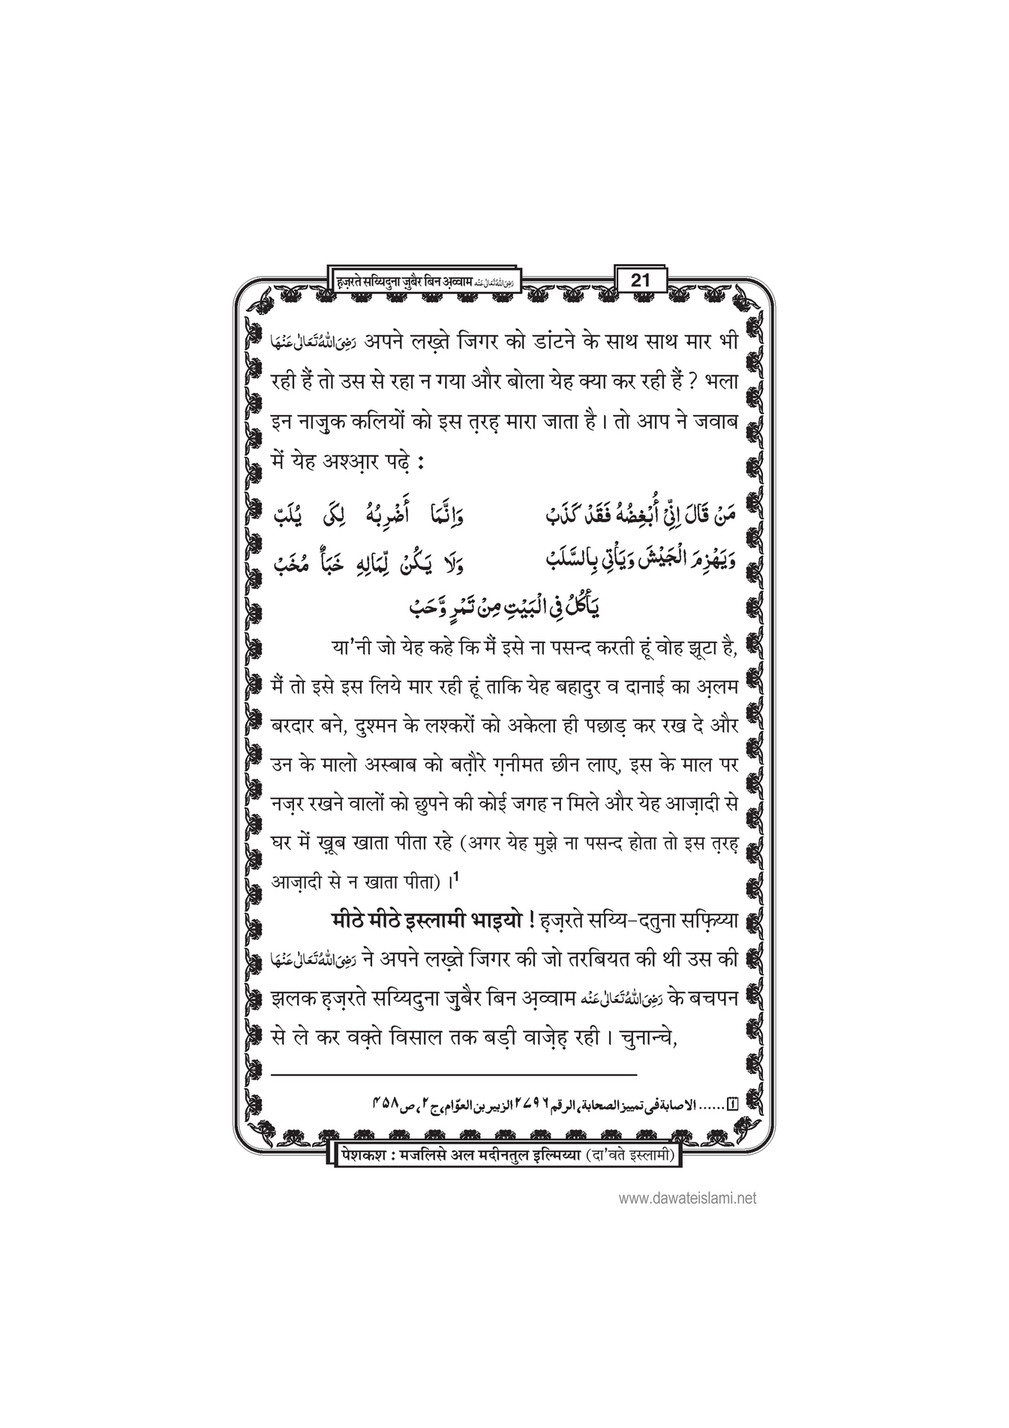 हज़रते सय्यिदुना ज़ुबैर बिन अ़व्वाम رَضِیَ اللّٰہُ تَعَالٰی عَنْہ
21
رَضِیَ اللّٰہُ تَعَالٰی عَنْہَا अपने लख़्ते जिगर को डांटने के साथ साथ मार भी
रही हैं तो उस से रहा न गया और बोला येह क्या कर रही हैं ? भला
इन नाज़ुक कलियों को इस त़रह़ मारा जाता है। तो आप ने जवाब
में येह अश्आ़र पढ़े :
مَنْ قَالَ اِنِّیْ اُبْغِضُهُ فَقَدْ كَذَبْ وَاِنَّمَا اَضْرِبُهُ لِكَیْ يُلَبّ
وَيَهْزِمَ الْجَيْشَ وَيَأْتِیْ بِالسَّلَبْ وَلَا يَكُنْ لِّمَالِهِ خَبَأٌ مُخَبّ
يَأْكُلُ فِی الْبَيْتِ مِنْ تَمْرٍ وَّحَبْ
या'नी जो येह कहे कि मैं इसे ना पसन्द करती हूं वोह झूटा है,
मैं तो इसे इस लिये मार रही हूं ताकि येह बहादुर व दानाई का अ़लम
बरदार बने, दुश्मन के लश्करों को अकेला ही पछाड़ कर रख दे और
उन के मालो अस्बाब को बत़ौरे ग़नीमत छीन लाए, इस के माल पर
नज़र रखने वालों को छुपने की कोई जगह न मिले और येह आज़ादी से
घर में ख़ूब खाता पीता रहे (अगर येह मुझे ना पसन्द होता तो इस त़रह़
आज़ादी से न खाता पीता) ।1
मीठे मीठे इस्लामी भाइयो ! ह़ज़रते सय्यि-दतुना सफ़िय्या
رَضِیَ اللّٰہُ تَعَالٰی عَنْہَا ने अपने लख़्ते जिगर की जो तरबियत की थी उस की
झलक ह़ज़रते सय्यिदुना ज़ुबैर बिन अ़व्वाम رَضِیَ اللّٰہُ تَعَالٰی عَنْہ के बचपन
से ले कर वक़्ते विसाल तक बड़ी वाज़ेह़ रही । चुनान्चे,
۱...... الاصابة فی تمییز الصحابة، الرقم ۲۷۹۶ الزبیر بن العوّام، ج۲، ص۴۵۸
पेशकश : मजलिसे अल मदीनतुल इल्मिय्या (दा'वते इस्लामी)
www.dawateislami.net